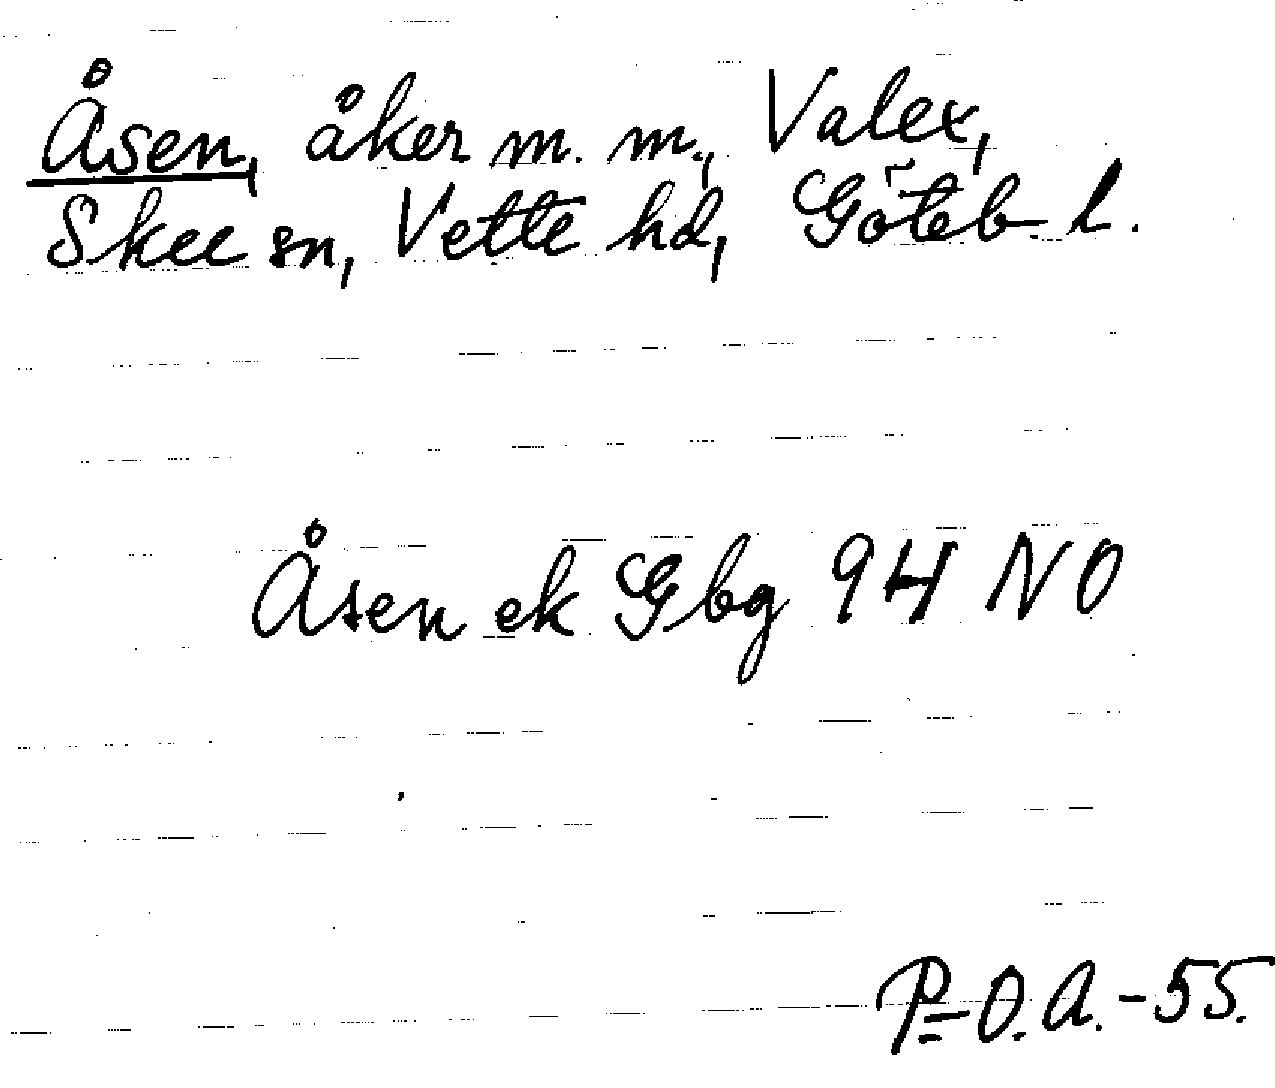 Åsen, åker m. m., Valex,
Skee sn, Vette hd, Göteb. l.
Åsen ek Gbg 94 NO
P-O. A. - 55.